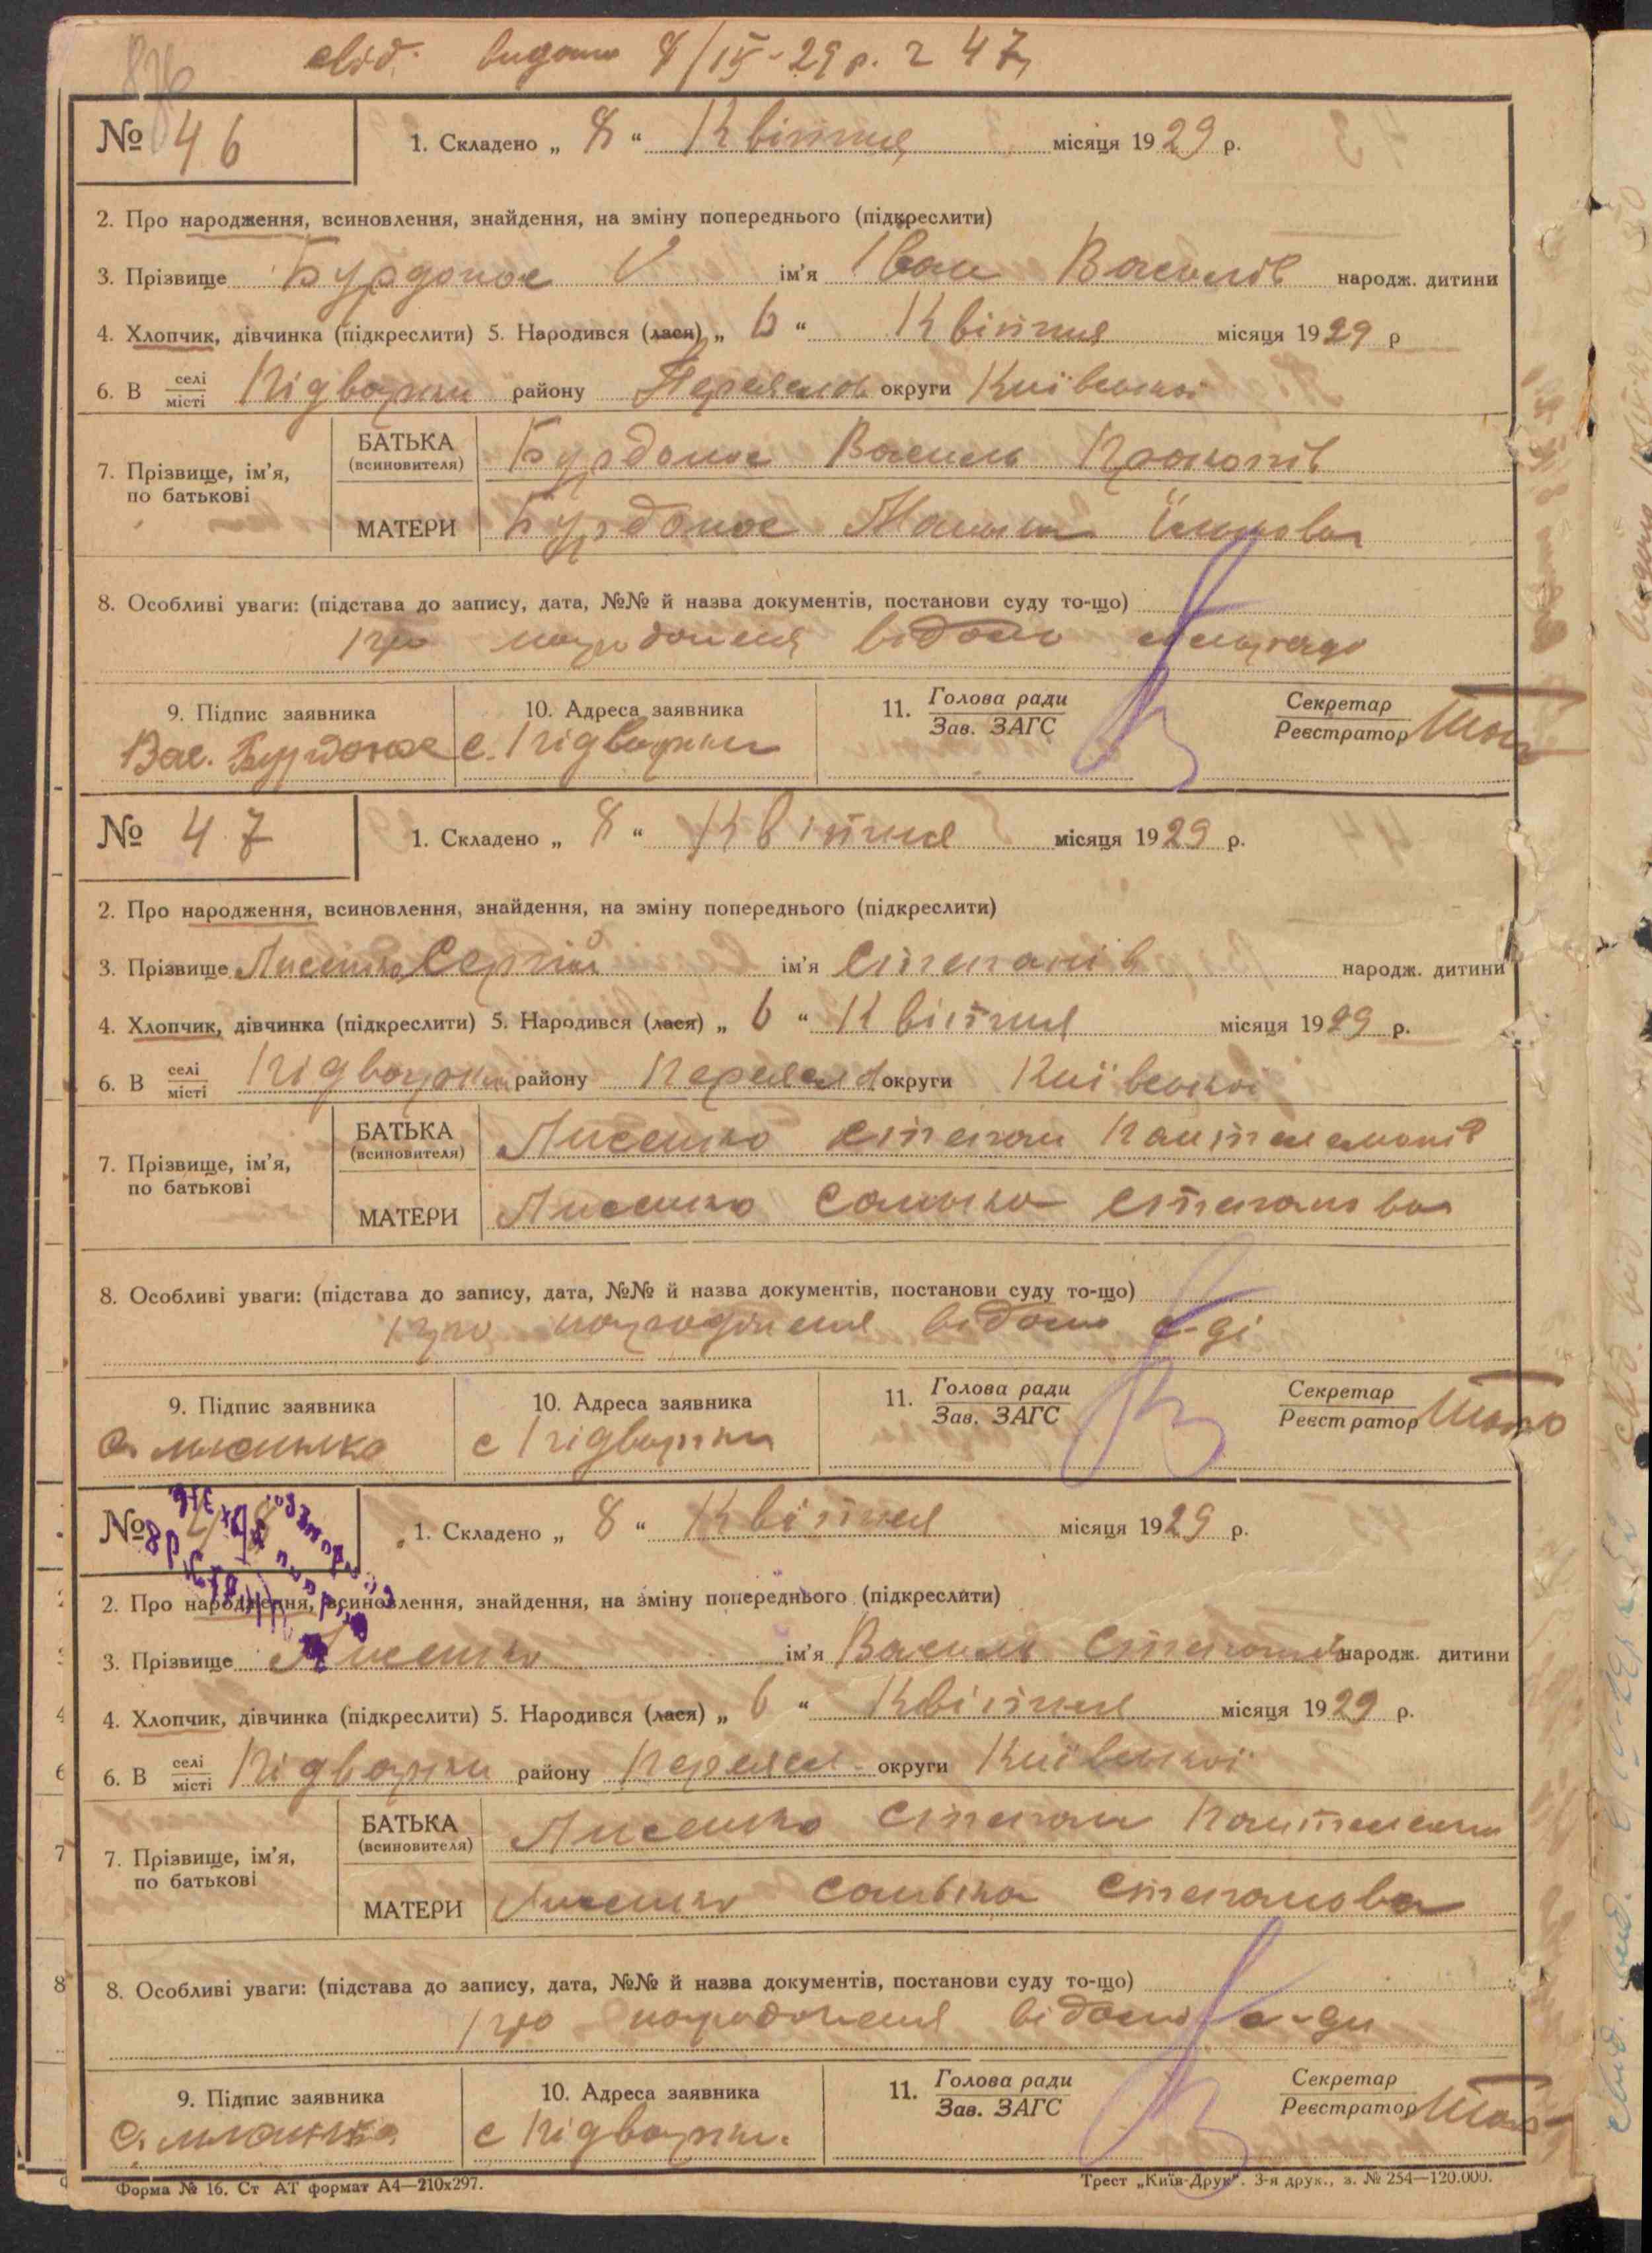 свід. видано 8/IV-29 р. г 47
№ 46
1. Складено „ 8 “ Квітня місяця 1929 р.
2. Про народження, всиновлення, знайдення, на зміну попереднього (підкреслити)
3. Прізвище Бурдонос ім’я Іван Василів народж. дитини
4. Хлопчик, дівчинка (підкреслити) 5. Народився (лася) „ 6 “ Квітня місяця 1929 р
6. В селі місті Підварки району Переяслов округи Київської
7. Прізвище, ім’я, по батькові
БАТЬКА (всиновителя) Бурдонос Василь Прокопів
МАТЕРИ Бурдонос
8. Особливі уваги: (підстава до запису, дата, №№ й назва документів, постанови суду то-що)
про народженя відомо
9. Підпис заявника
10. Адреса заявника
11. Голова ради Зав. ЗАГС
Секретар Реєстратор
Вас. Бурдонос
с. Підварки
№ 47
1. Складено „ 8 “ Квітня місяця 1929 р.
2. Про народження, всиновлення, знайдення, на зміну попереднього (підкреслити)
3. Прізвище Лисенко Сергій ім’я Степанів народж. дитини
4. Хлопчик, дівчинка (підкреслити) 5. Народився (лася) „ 6 “ Квітня місяця 1929 р.
6. В селі місті Підварки району Переяслов округи Київської
7. Прізвище, ім’я, по батькові
БАТЬКА (всиновителя) Лисенко Степан Пантелемонів
МАТЕРИ Лисенко Солошка Степанова
8. Особливі уваги: (підстава до запису, дата, №№ й назва документів, постанови суду то-що)
про народженя відомо с-ді
9. Підпис заявника
10. Адреса заявника
11. Голова ради Зав. ЗАГС
Секретар Реєстратор
с Підварки
№ 48
1. Складено „ 8 “ Квітня місяця 1929 р.
2. Про народження, всиновлення, знайдення, на зміну попереднього (підкреслити)
3. Прізвище Лисенко ім’я Василь Степанів народж. дитини
4. Хлопчик, дівчинка (підкреслити) 5. Народився (лася) „ 6 “ Квітня місяця 1929 р.
6. В селі місті Підварки району Переясл- округи Київської
7. Прізвище, ім’я, по батькові
БАТЬКА (всиновителя) Лисенко Степан
МАТЕРИ Лисенко Степанова
8. Особливі уваги: (підстава до запису, дата, №№ й назва документів, постанови суду то-що)
про народженя відомо с-ди
9. Підпис заявника
10. Адреса заявника
11. Голова ради Зав. ЗАГС
Секретар Реєстратор
с Підварки.
Форма № 16. Ст АТ формат А4—210х297.
Трест „Київ-Друк“. 3-я друк., з. № 254—120.000.